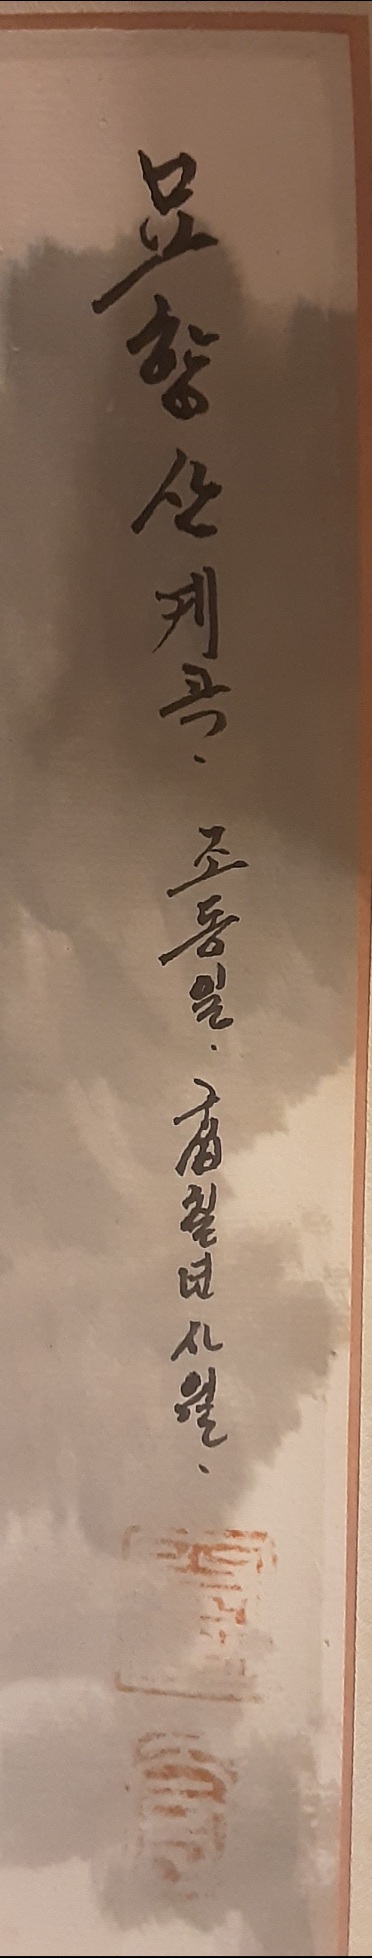 묘향산계곡. 조동일. 칠년 사월.